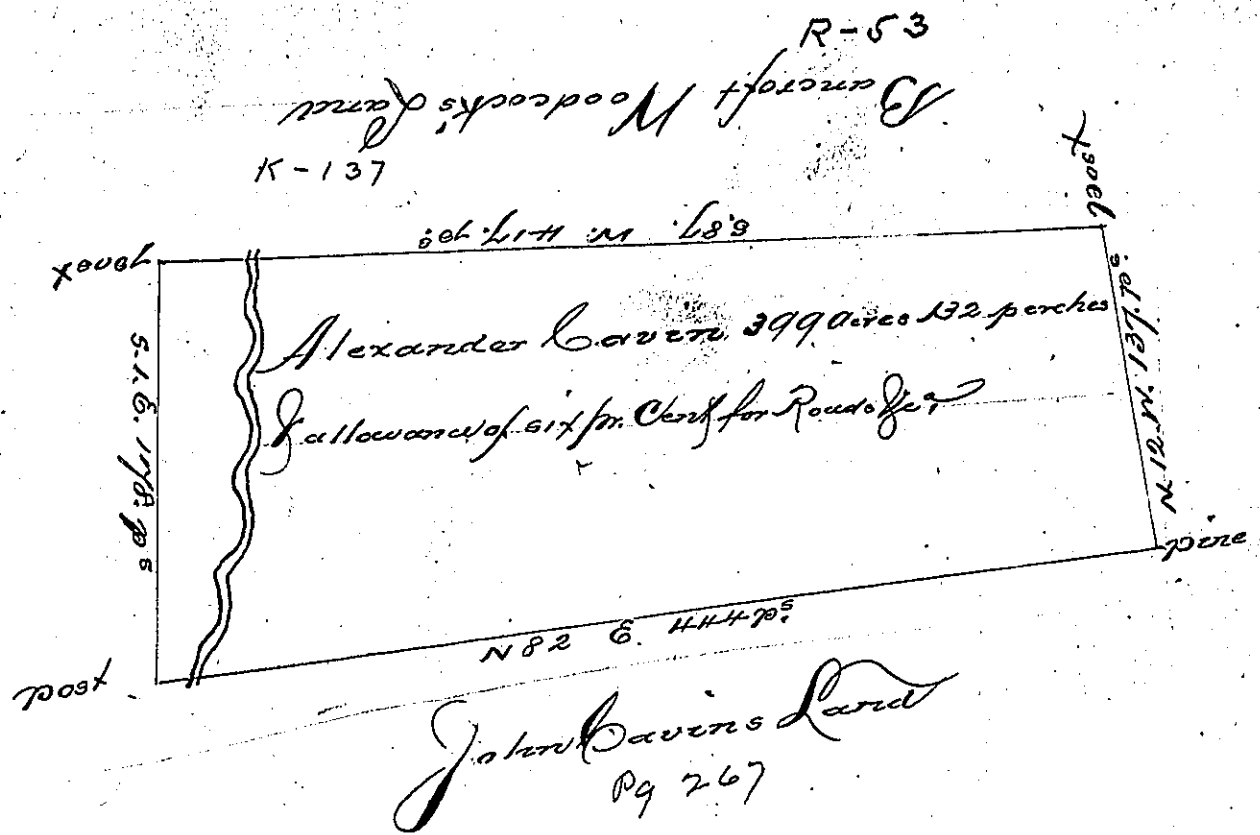 R-53
Bancroft Woodcock's Land
K-137
post
S. 87. W. 417. ps
N. 12. W. 137. ps
Alexander Cavin 399 Acres 132 perches
& allowance of six pr. Cent for Roads &c.
S. 1. E. 178. ps
pine
N 82 E. 444 ps
post
John Cavins Land
Pg 267